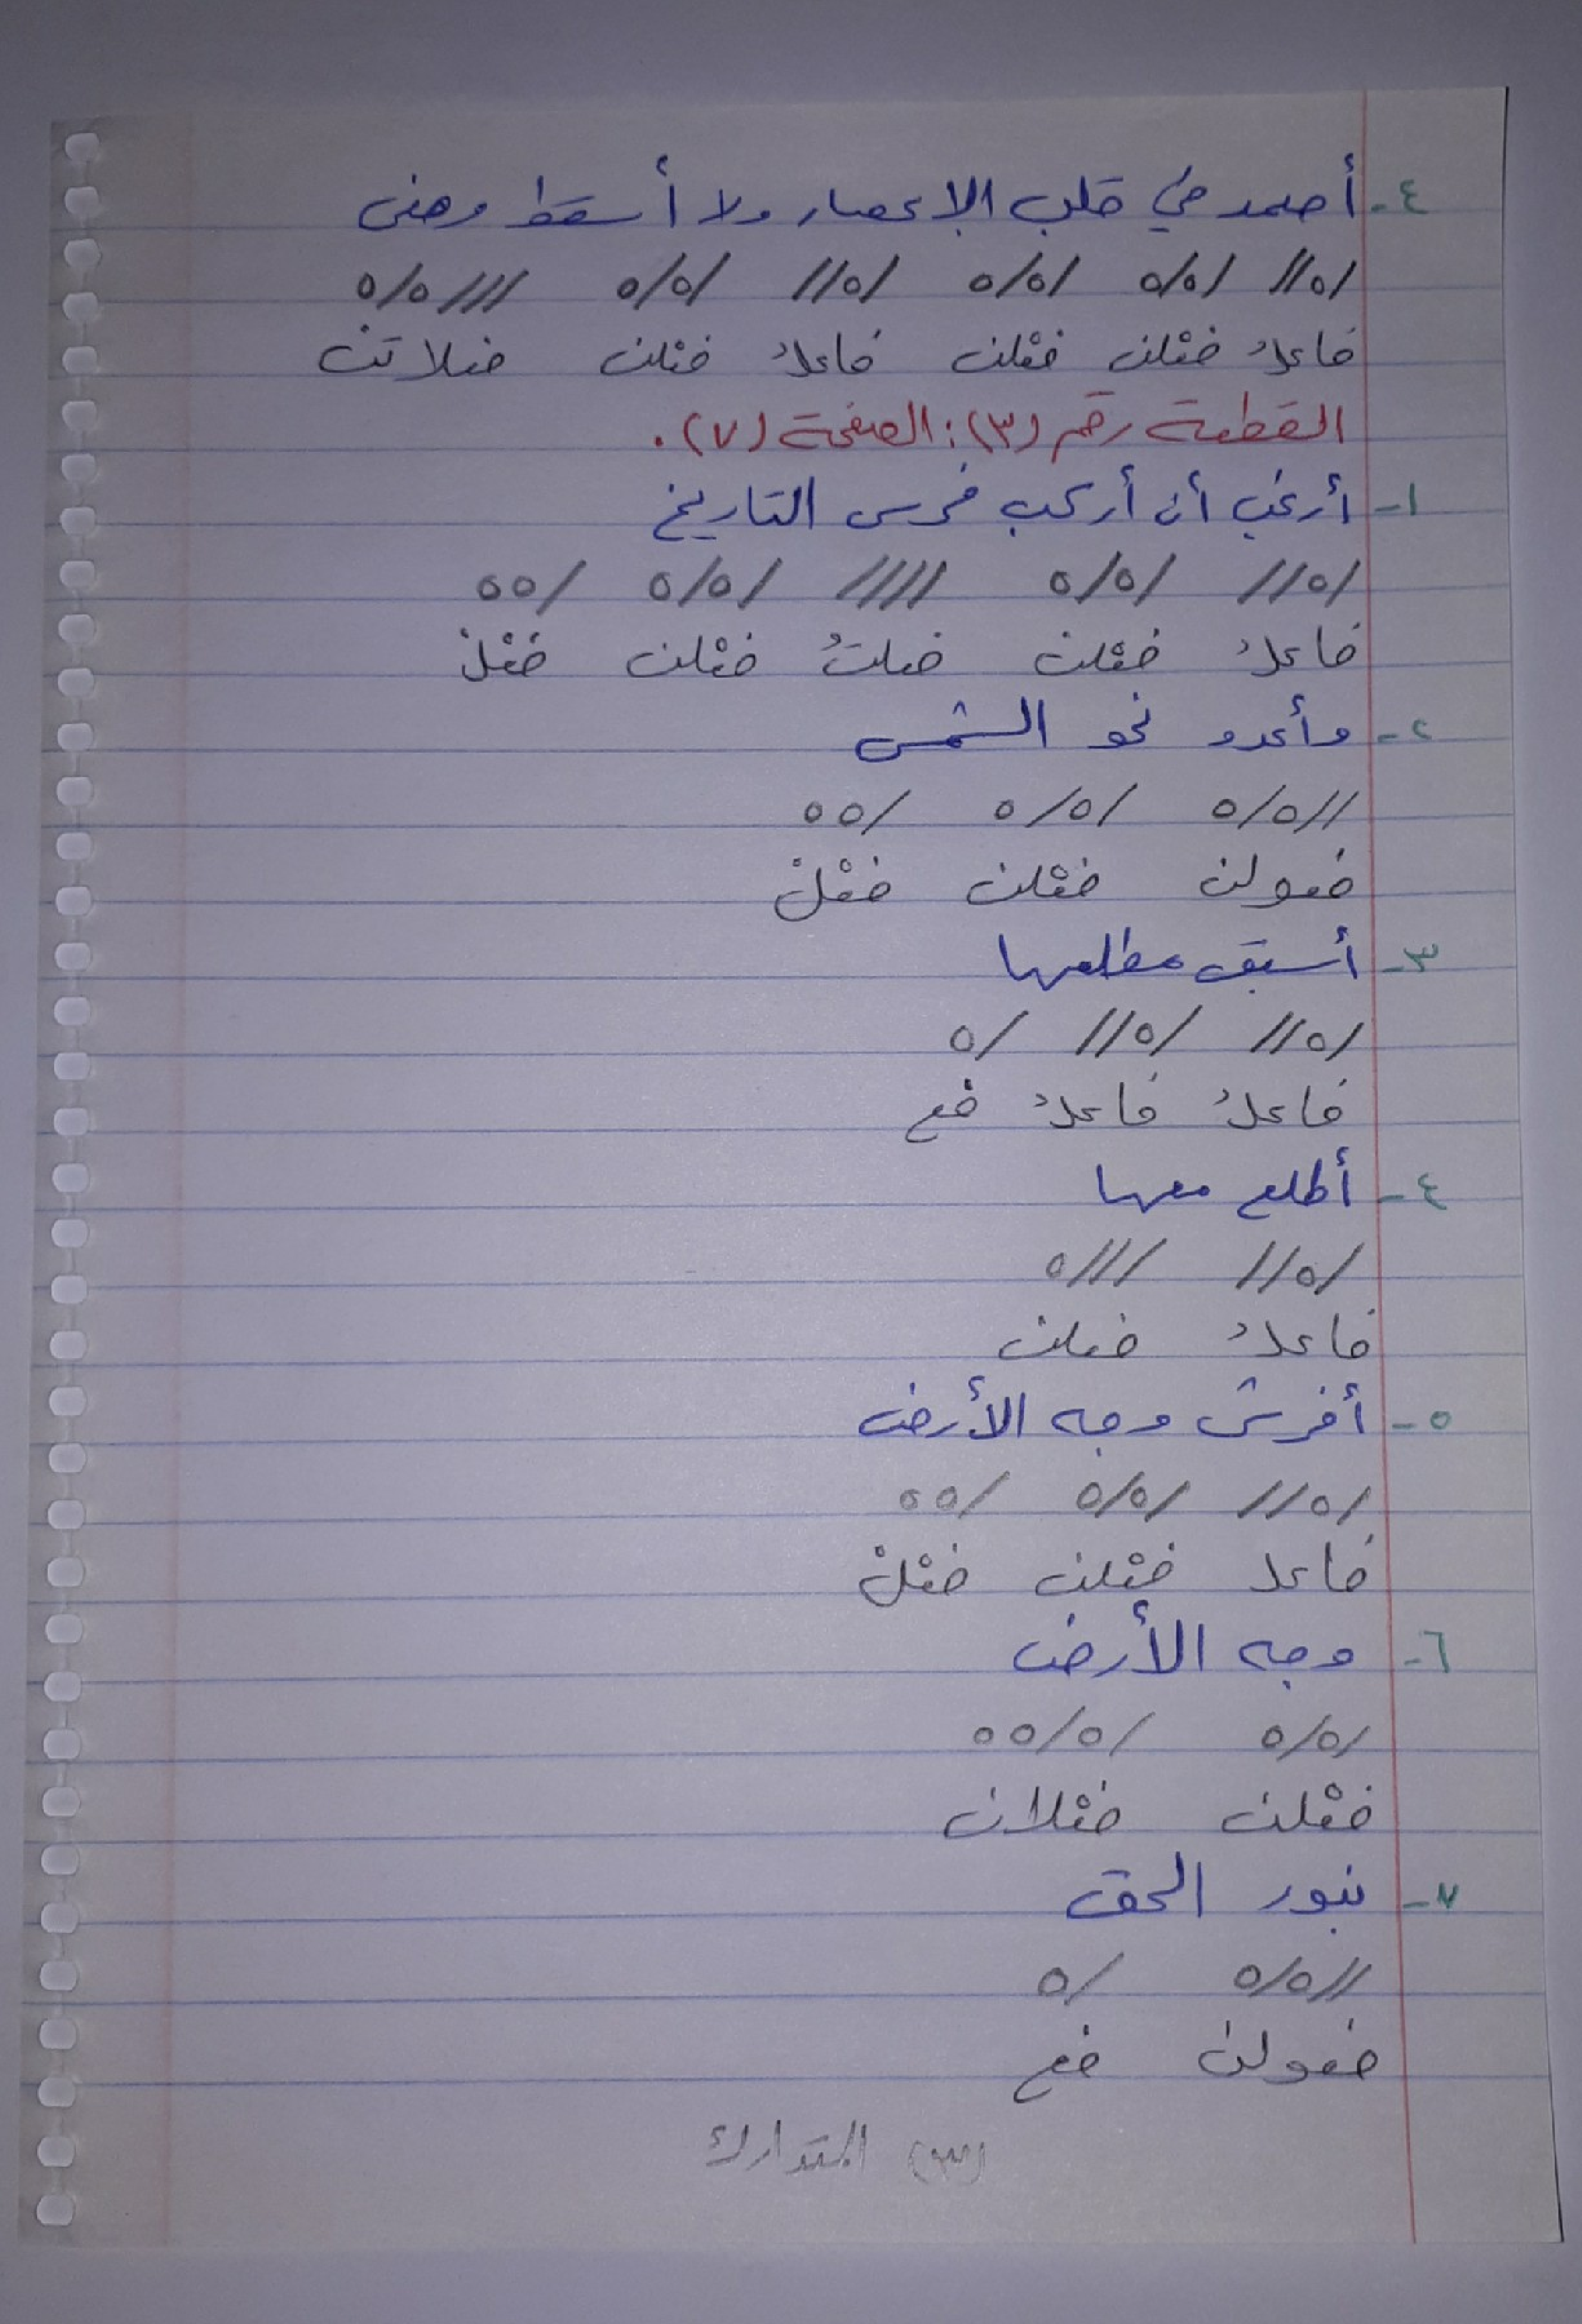 ٤- أصمد في قلب الإعصار ولا أسقط وهنى
/٥// /٥/٥ /٥/٥ /٥// /٥/٥ ///٥/٥
فاعلُ فعْلن فعْلن فاعلُ فعْلن فعلاتن
القطعة رقم (٣): الصفحة (٧).
١- أرغب أن أركب فرس التاريخ
/٥// /٥/٥ //// /٥/٥ /٥٥
فاعلُ فعْلن فعلتُ فعْلن فعْلْ
٢- وأعدو نحو الشمس
//٥/٥ /٥/٥ /٥٥
فعولن فعْلن فعْلْ
٣- أسبق مطلعها
/٥// /٥// /٥
فاعلُ فاعلُ فع
٤- أطلع معها
/٥// ///٥
فاعلُ فعلن
٥- أفرش وجه الأرض
/٥// /٥/٥ /٥٥
فاعل فعْلن فعْلْ
٦- وجه الأرض
/٥/٥ /٥/٥٥
فعْلن فعْلان
٧- بنور الحق
//٥/٥ /٥
فعولن فع
(٣) المتدارك